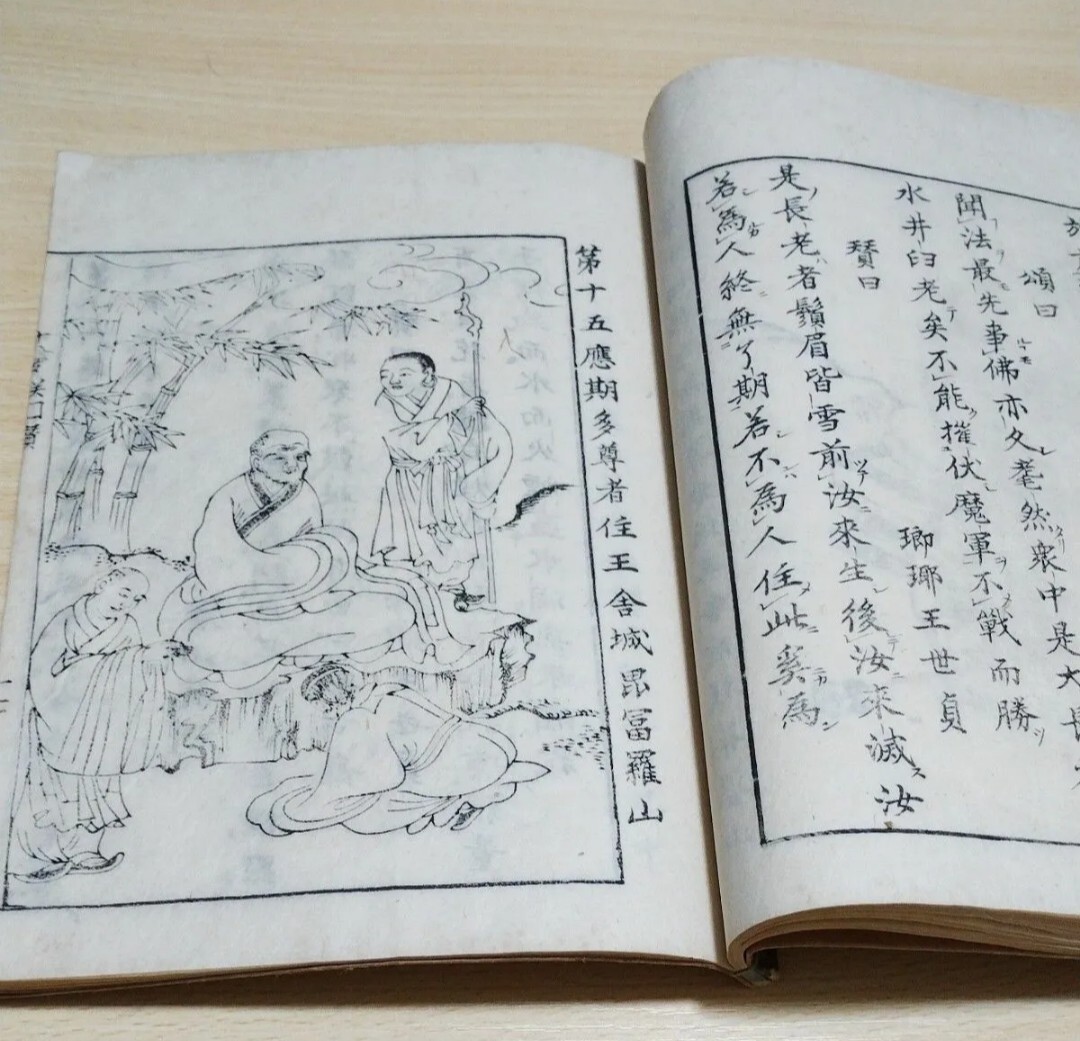 頌曰
聞法最先事佛亦久耄然衆中是大長
水井臼老矣不能摧伏魔軍不戰而勝
賛曰　瑯琊王世貞
是長老者鬚眉皆雪前汝來生後汝來滅汝
若為人終無了期若不為人住此奚為
第十五應期多尊者住王舍城毘冨羅山